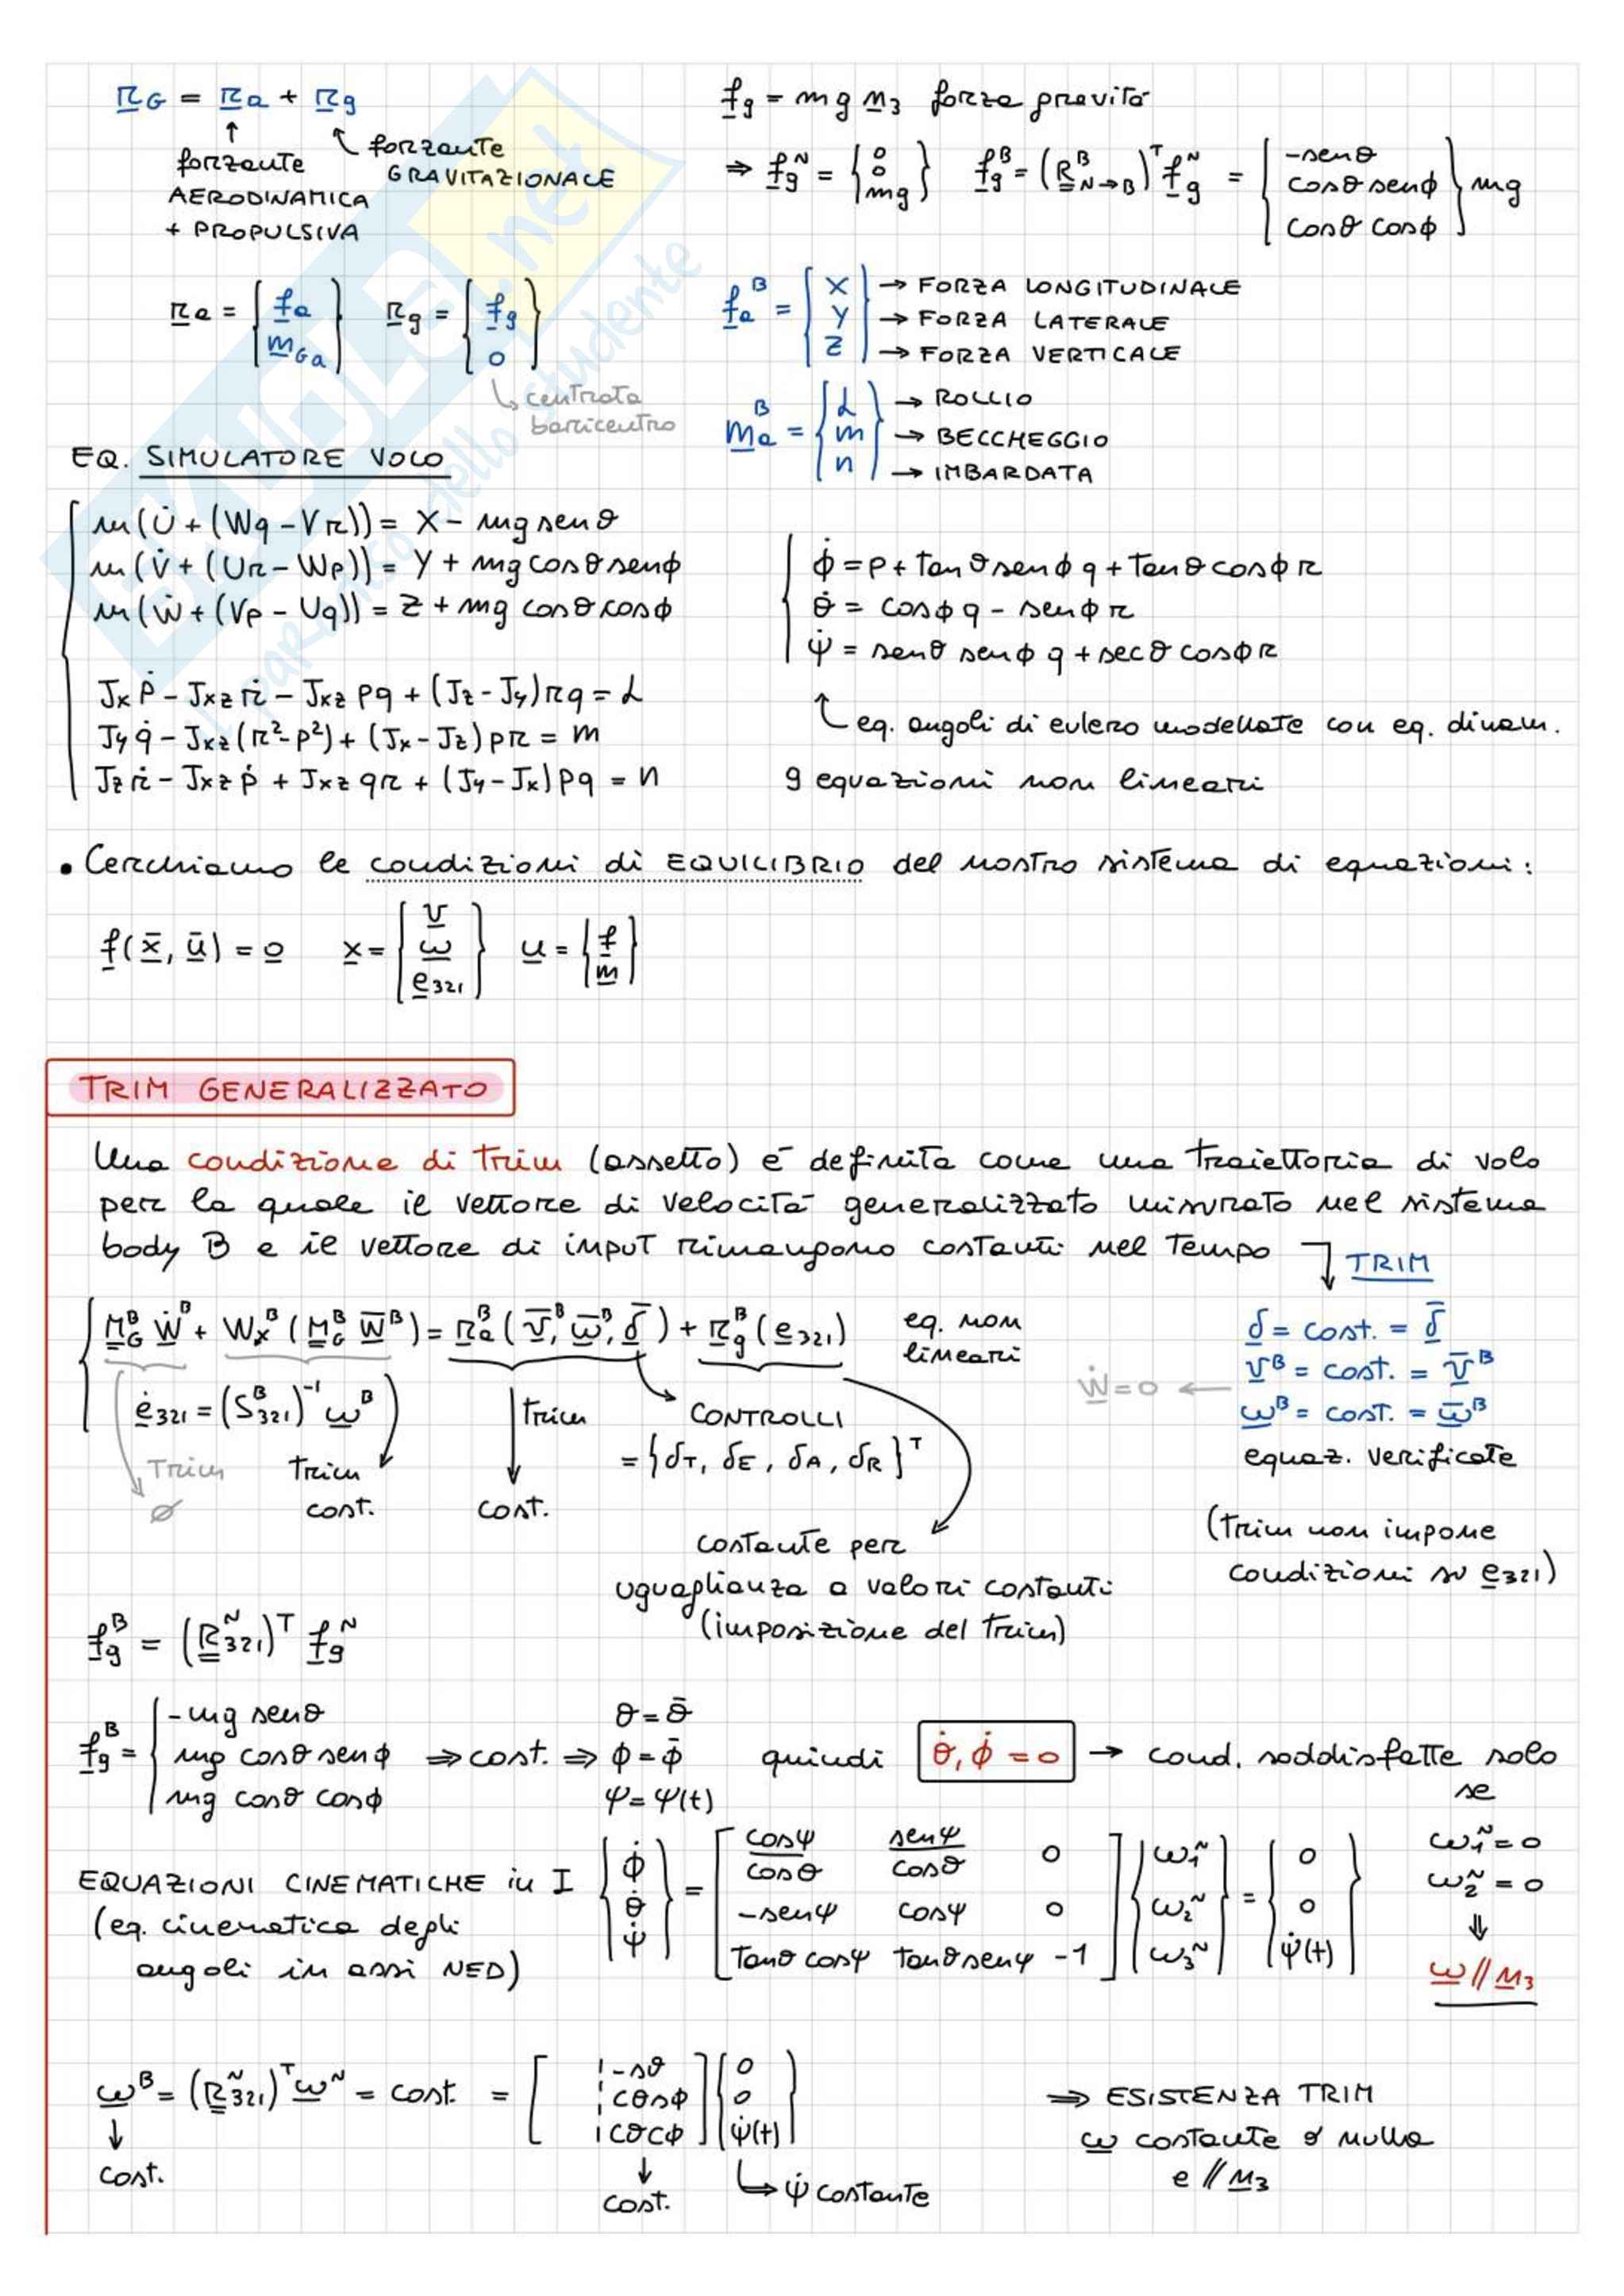 r_G = r_a + r_g
↑ forzante AERODINAMICA + PROPULSIVA
↖ forzante GRAVITAZIONALE
f_g = m g n_3 forza gravità
⇒ f_g^N = {0 0 mg} f_g^B = (R_{N→B}^B)^T f_g^N = {-senθ cosθ senϕ cosθ cosϕ} mg
r_a = {f_a m_Ga} r_g = {f_g 0}
↳ centrata baricentro
f_a^B = {X Y Z}
→ FORZA LONGITUDINALE
→ FORZA LATERALE
→ FORZA VERTICALE
m_a^B = {L m n}
→ ROLLIO
→ BECCHEGGIO
→ IMBARDATA
EQ. SIMULATORE VOLO
m(U̇ + (Wq - Vr)) = X - mg senθ
m(V̇ + (Ur - Wp)) = Y + mg cosθ senϕ
m(Ẇ + (Vp - Uq)) = Z + mg cosθ cosϕ
J_x ṗ - J_xz ṙ - J_xz pq + (J_z - J_y) rq = L
J_y q̇ - J_xz (r² - p²) + (J_x - J_z) pr = m
J_z ṙ - J_xz ṗ + J_xz qr + (J_y - J_x) pq = n
ϕ̇ = p + tanθ senϕ q + tanθ cosϕ r
θ̇ = cosϕ q - senϕ r
ψ̇ = senθ senϕ q + secθ cosϕ r
eq. angoli di eulero modellate con eq. dinam.
9 equazioni non lineari
• Cerchiamo le condizioni di EQUILIBRIO del nostro sistema di equazioni:
f(x̄, ū) = 0 x = {v ω e_321} u = {f m}
TRIM GENERALIZZATO
Una condizione di trim (assetto) é definita come una traiettoria di volo
per la quale il vettore di velocità generalizzato misurato nel sistema
body B e il vettore di input rimangono costanti nel tempo ↓ TRIM
M_G^B Ẇ^B + W_×^B (M_G^B W̄^B) = r_a^B (v̄^B, ω̄^B, δ̄) + r_g^B (e_321) eq. non lineari
ė_321 = (S_321^B)^-1 ω^B
Trim ∅
trim cost.
trim cost.
CONTROLLI = {δ_T, δ_E, δ_A, δ_R}^T
costante per
uguaglianza a valori costanti
(imposizione del trim)
δ = cost. = δ̄
v^B = cost. = v̄^B
Ẇ = 0 ←
ω^B = cost. = ω̄^B
equaz. verificate
(trim non impone
condizioni su e_321)
f_g^B = (R_321^N)^T f_g^N
f_g^B = {-mg senθ mg cosθ senϕ mg cosθ cosϕ ⇒ cost. ⇒ θ = θ̄ ϕ = ϕ̄ ψ = ψ(t) quindi θ̇, ϕ̇ = 0 → cond. soddisfatte solo
se
ω_1^N = 0
ω_2^N = 0
⇓
ω // n_3
EQUAZIONI CINEMATICHE in I
(eq. cinematica degli
angoli in assi NED)
{ϕ̇ θ̇ ψ̇} = [cosψ/cosθ senψ/cosθ 0
-senψ cosψ 0
tanθ cosψ tanθ senψ -1] {ω_1^N ω_2^N ω_3^N} = {0 0 ψ̇(t)}
ω^B = (R_321^N)^T ω^N = cost. = [ -sθ cθsϕ cθcϕ ] {0 0 ψ̇(t)}
↓ cost.
↓ cost.
↳ ψ̇ costante
⇒ ESISTENZA TRIM
ω costante o nulla
e // n_3